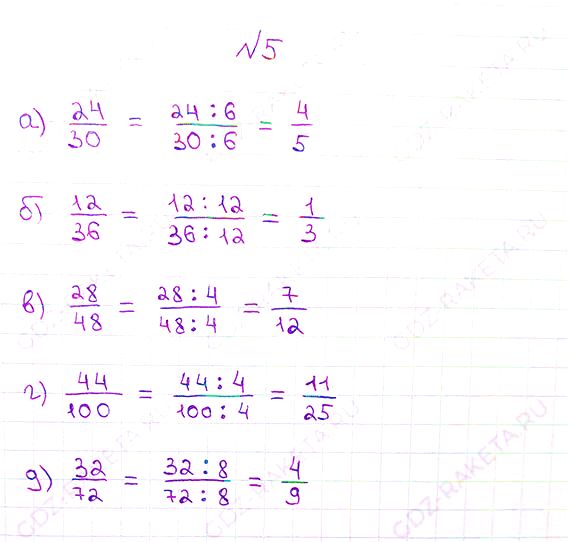 №5
а) 24/30 = 24:6/30:6 = 4/5
б) 12/36 = 12:12/36:12 = 1/3
в) 28/48 = 28:4/48:4 = 7/12
г) 44/100 = 44:4/100:4 = 11/25
д) 32/72 = 32:8/72:8 = 4/9
GDZ-RAKETA.RU